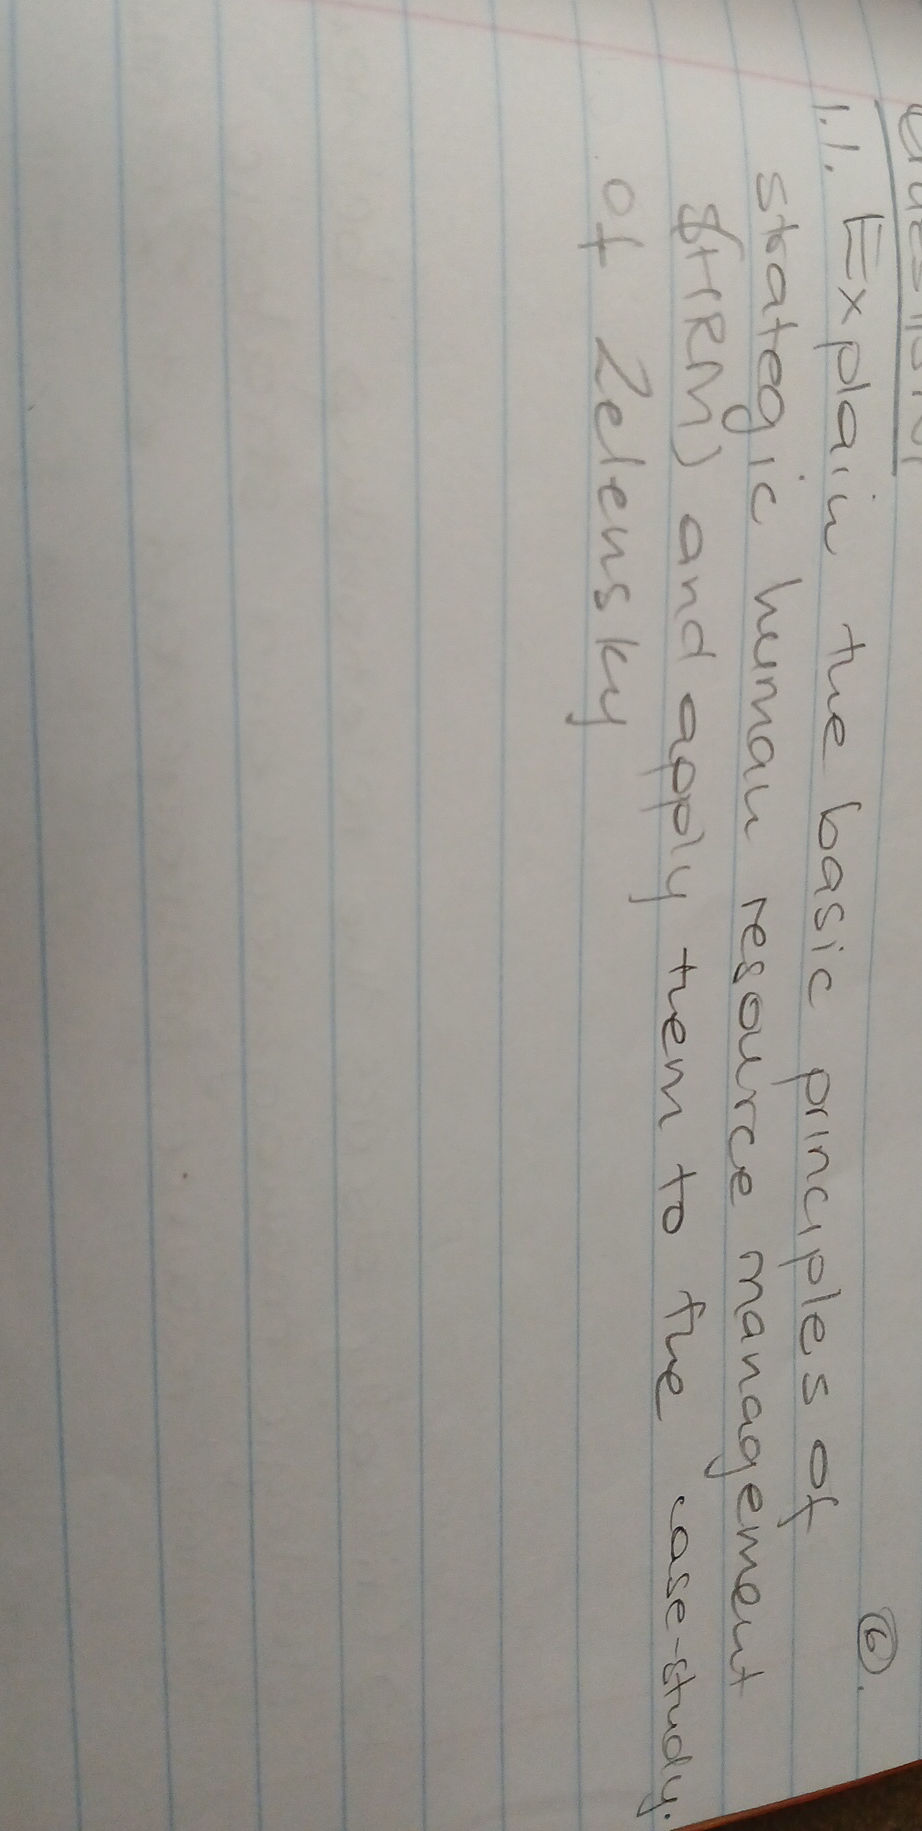 Question 1
1.1. Explain the basic principles of
strategic human resource management
SHRM) and apply them to the case-study.
of Zelensky
6.